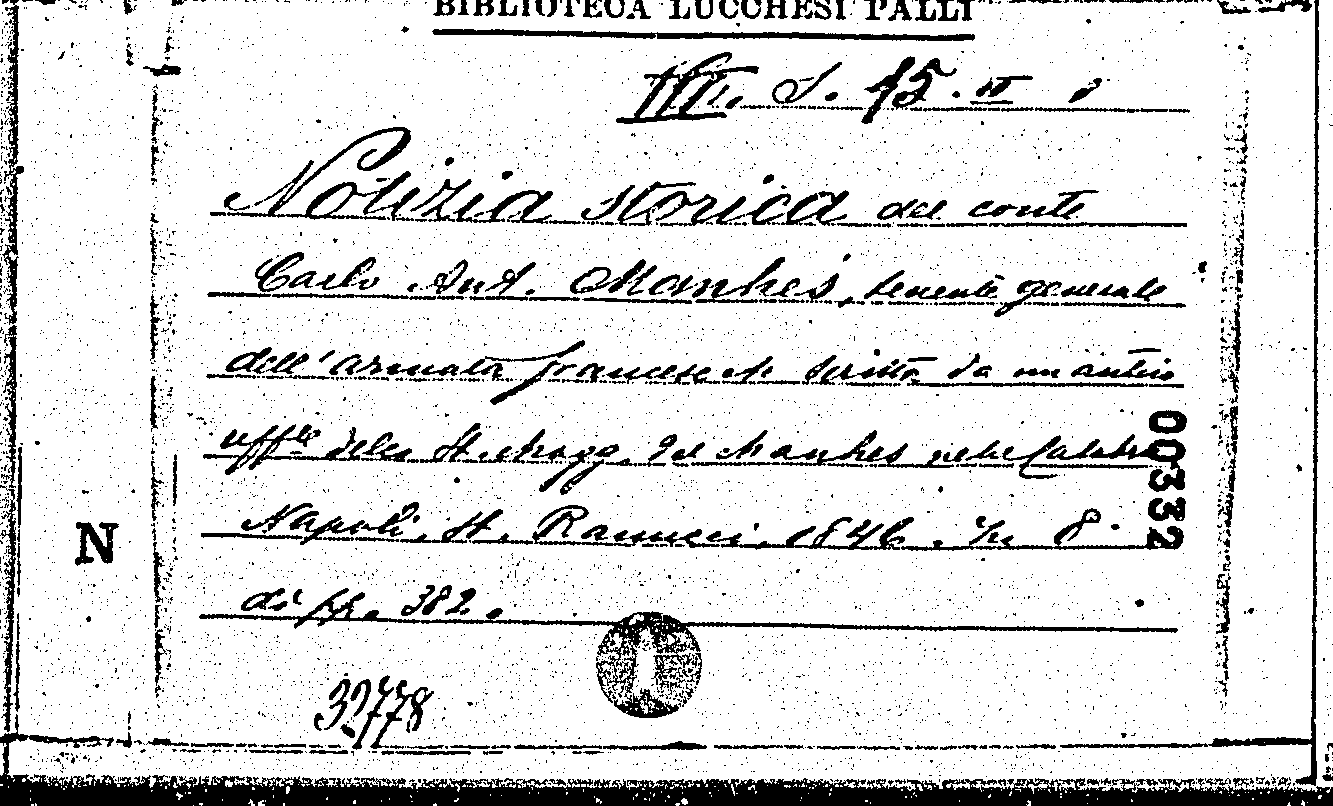 BIBLIOTECA LUCCHESI PALLI
VII. S. 15. III 8
Notizia storica del conte
Carlo Ant. Manhes, tenente generale
dell'armata francese scritta da un antico
uffle della St. Magg. del Manhes nelle Calabrie
00332
Napoli, St. Ranucci, 1846. In 8°
N
di pp. 382.
32778